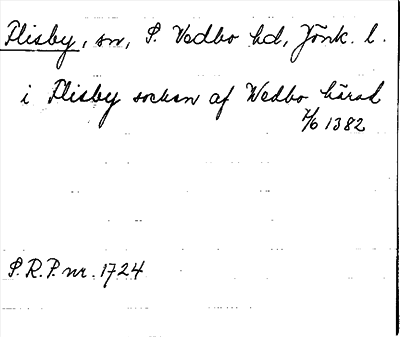 Flisby, sn, S. Vedbo hd, Jönk. l.
i Flisby socken af Wedbo härad
7/6 1382
S.R.P. nr. 1724